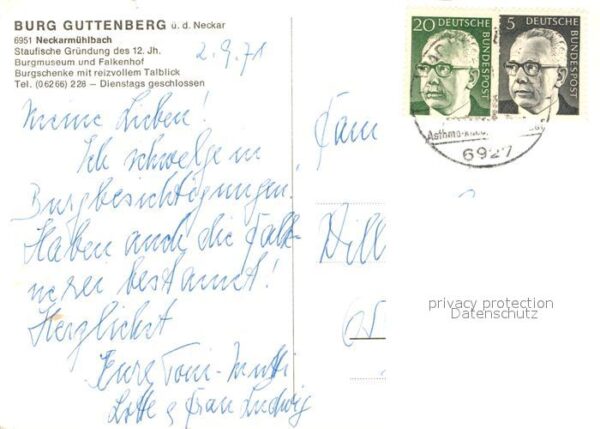 BURG GUTTENBERG ü. d. Neckar
6951 Neckarmühlbach
Staufische Gründung des 12. Jh.
Burgmuseum und Falkenhof
Burgschenke mit reizvollem Talblick
Tel. (06266) 228 – Dienstags geschlossen
2.9.71
Meine Lieben!
Ich schwelge in
Burgbesichtigungen.
Haben auch die Falk-
nerei bestaunt!
Herzlichst
Eure Toni-Mutti
Lotte & Frau Ludwig
20 DEUTSCHE BUNDESPOST
5 DEUTSCHE BUNDESPOST
Asthma-
6927
Fam
Dill
privacy protection
Datenschutz